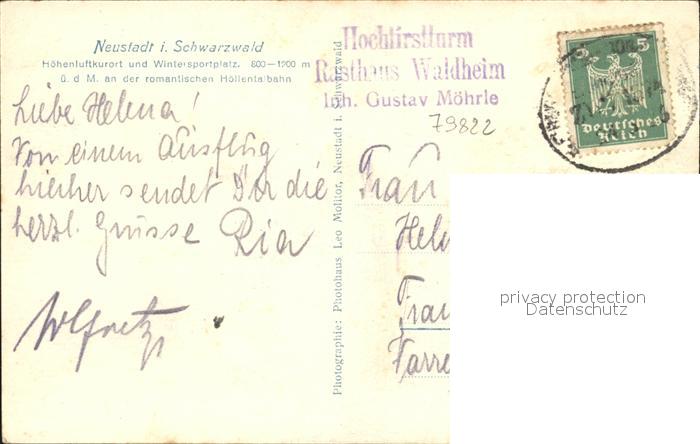 Neustadt i. Schwarzwald
Höhenluftkurort und Wintersportplatz. 800—1200 m
ü. d M. an der romantischen Höllentalbahn
Hochfirstturm
Rasthaus Waldheim
Inh. Gustav Möhrle
79822
5
Deutsches
Reich
Liebe Helena!
Von einem Ausflug
hierher sendet Dir die
herzl. Grüsse Ria
Photographie: Photohaus Leo Molitor, Neustadt i. Schwarzwald
Frau
Hel
Fran
Farre
privacy protection
Datenschutz